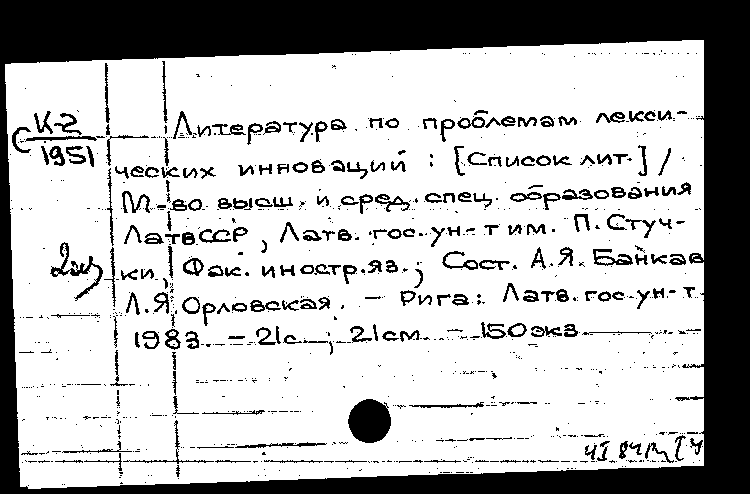 К-2
С 1951
Литература по проблемам лекси-
ческих инноваций : [Список лит.] /
М-во высш. и сред. спец. образования
ЛатвССР, Латв. гос. ун-т им. П. Стуч-
ки, Фак. иностр. яз.; Сост. А.Я. Банкав
Л.Я. Орловская. — Рига: Латв. гос. ун-т.
1983. — 21с. ; 21см. — 150экз.
2экз